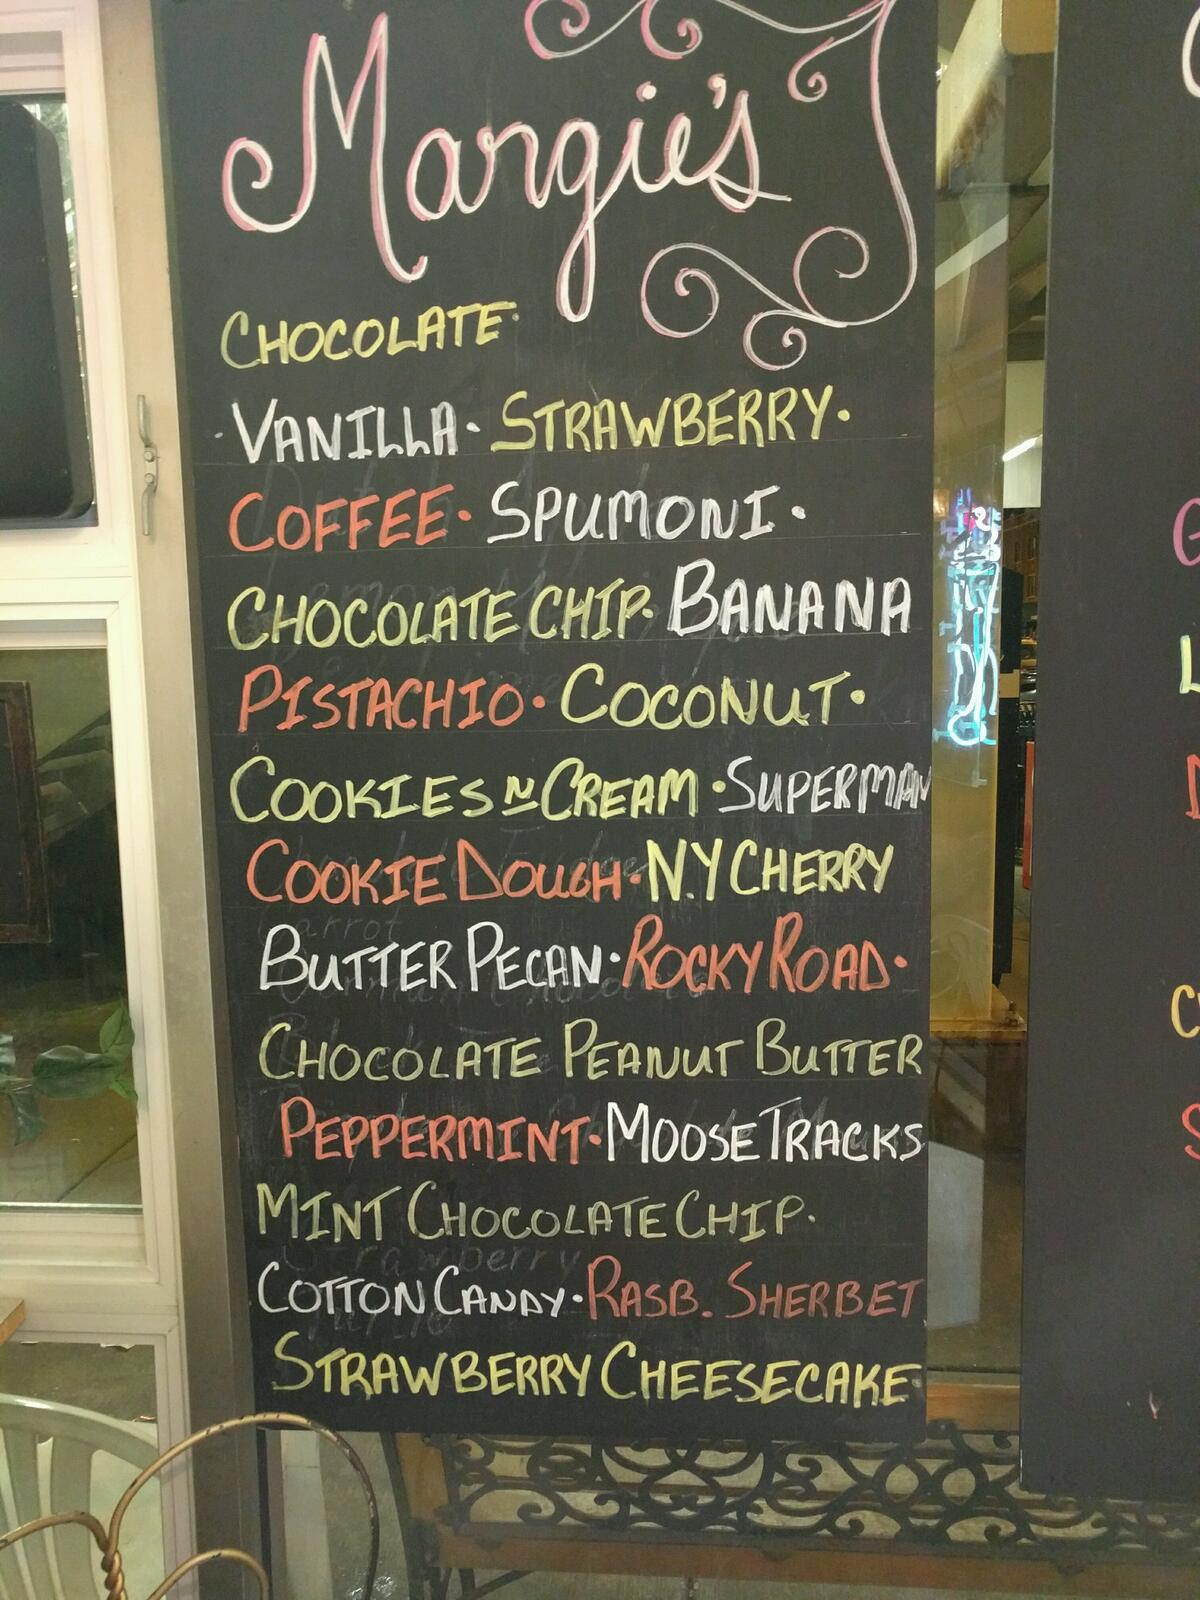 Margie's
CHOCOLATE·
·VANILLA· STRAWBERRY·
COFFEE· SPUMONI·
CHOCOLATE CHIP· BANANA
PISTACHIO· COCONUT·
COOKIES N CREAM ·SUPERMAN
COOKIE DOUGH· N.Y CHERRY
BUTTER PECAN· ROCKY ROAD·
CHOCOLATE PEANUT BUTTER
PEPPERMINT· MOOSE TRACKS
MINT CHOCOLATE CHIP·
COTTON CANDY· RASB. SHERBET
STRAWBERRY CHEESECAKE·